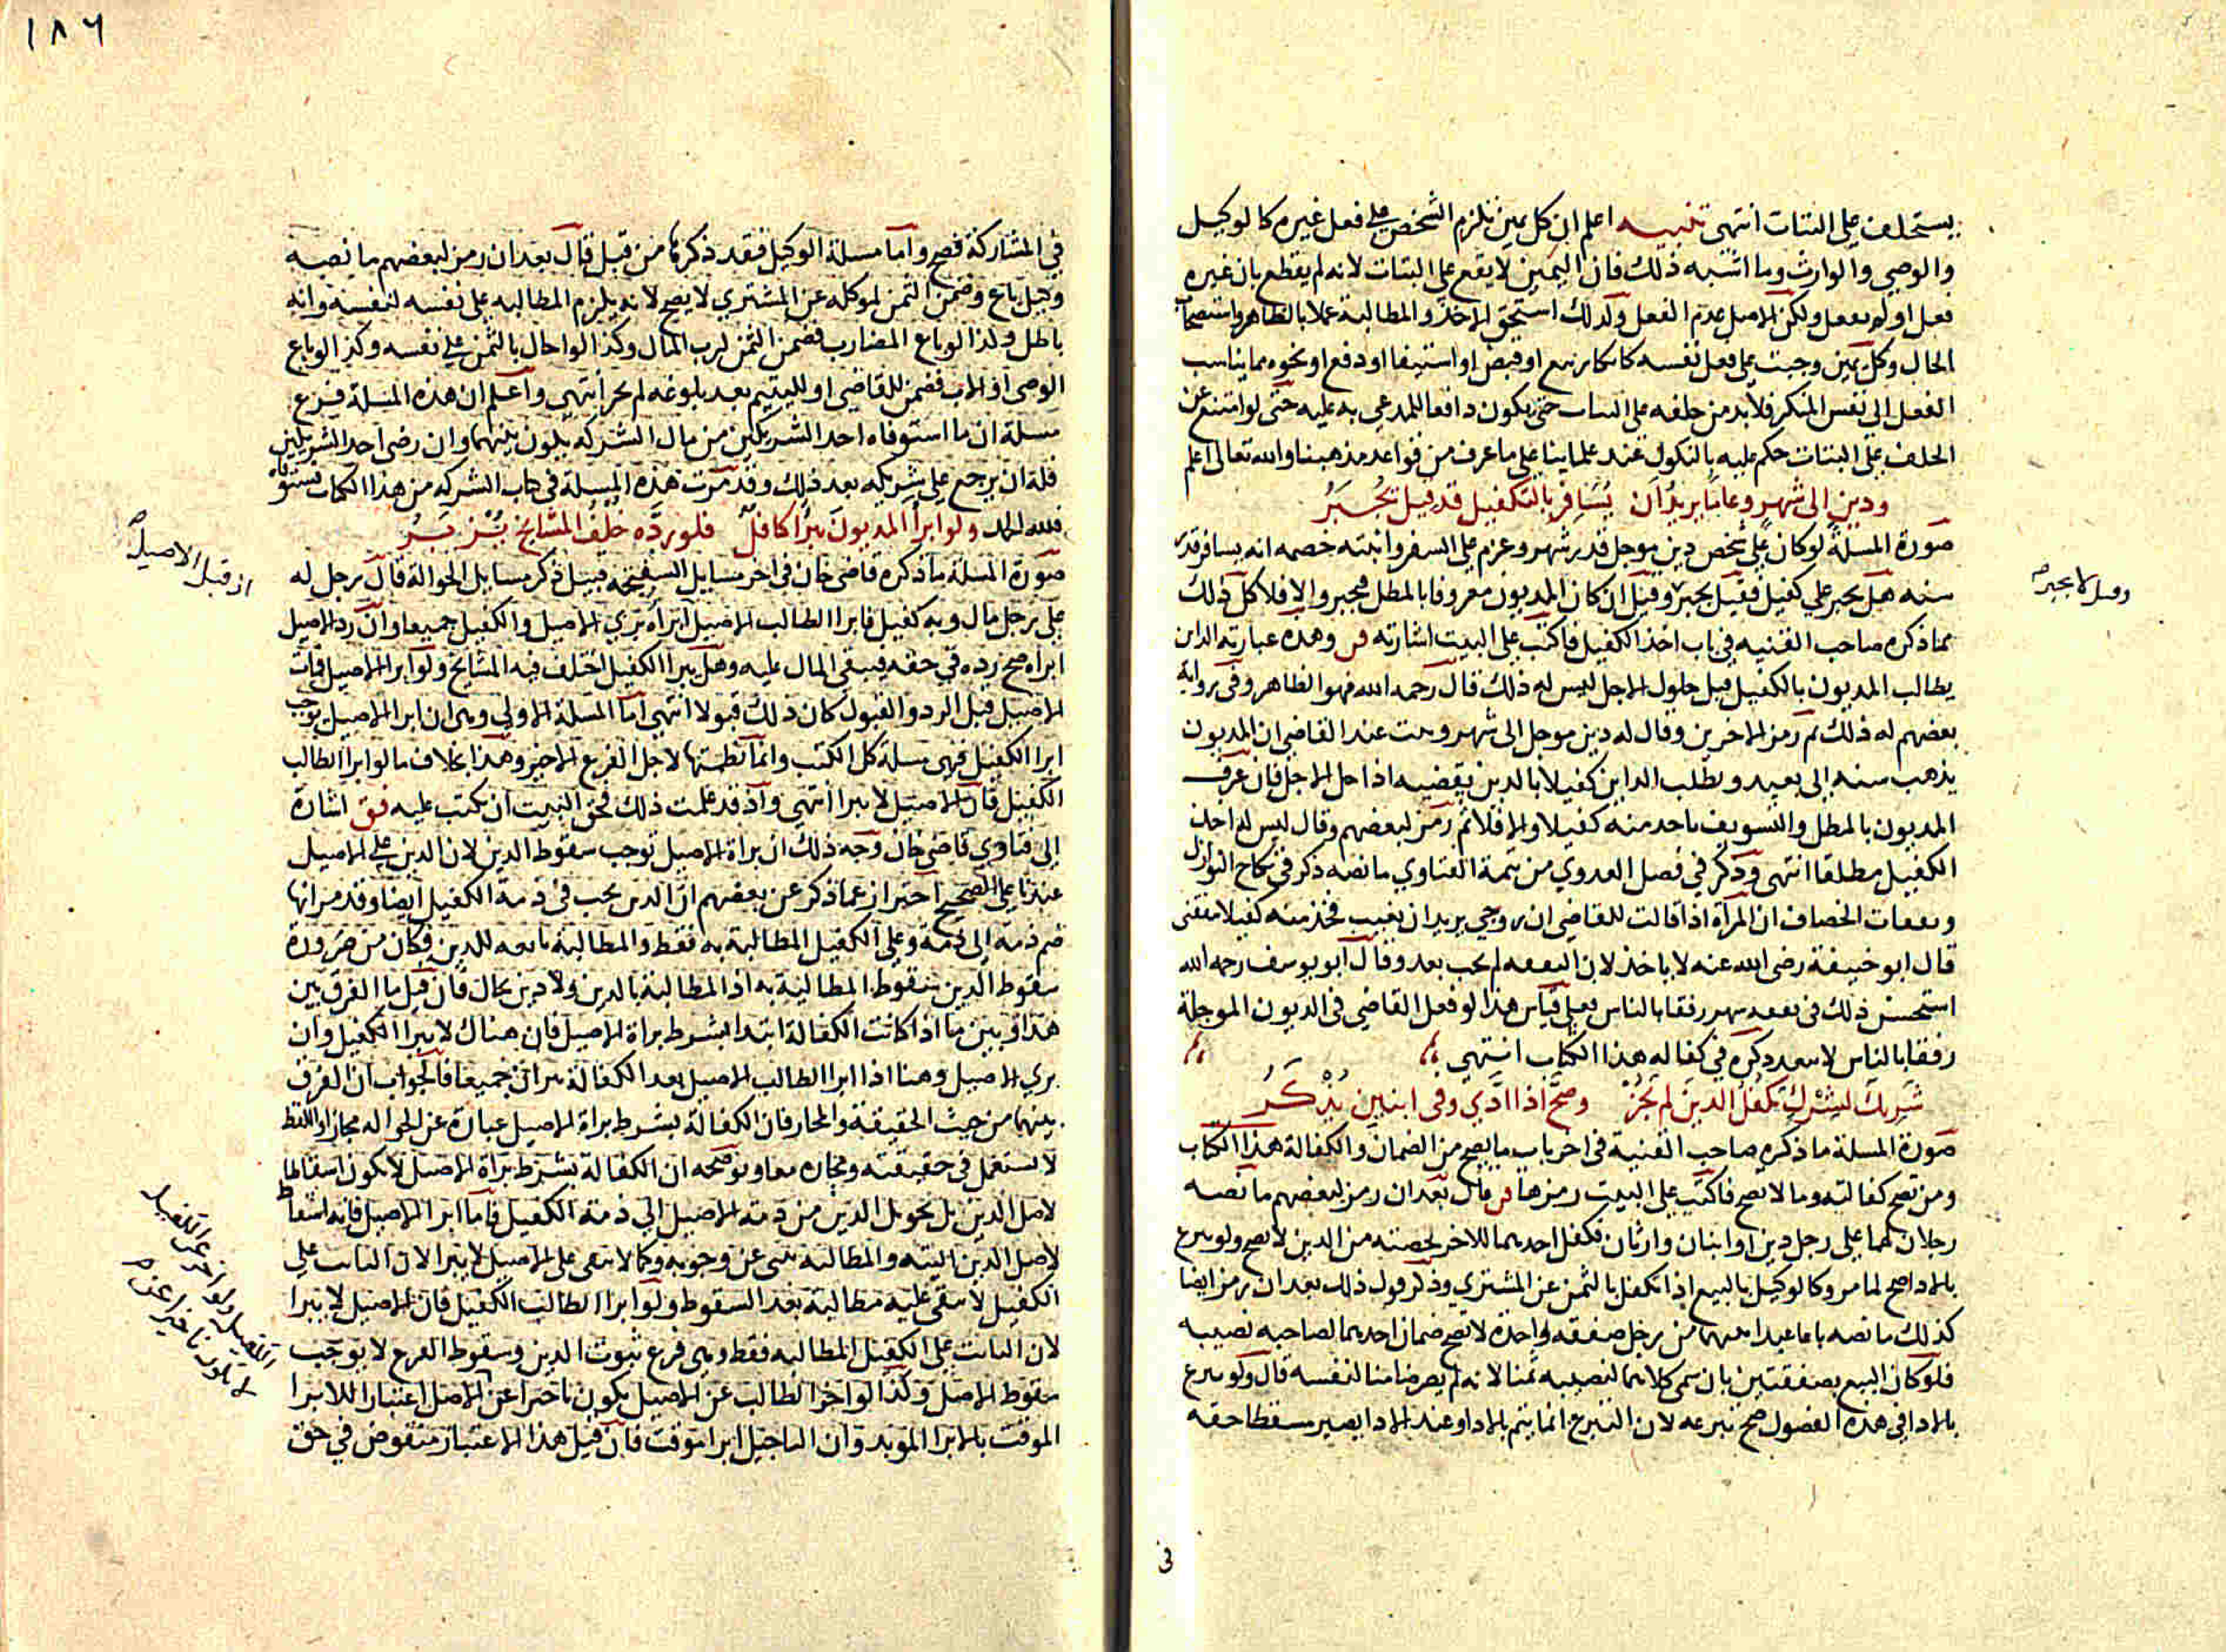 يستحلف على البتات انتهى تنبيه اعلم ان كل يمين تلزم الشخص على فعل غيره كالوكيل
والوصي والوارث وما اشبه ذلك فان اليمين لا يقع على البتات لانه لم يقطع بان غيره
فعل او لم يفعل ولكن الاصل عدم الفعل ولذلك استحق الاخذ والمطالبة عملا بالظاهر واستصحاب
الحال وكل يمين وجبت على فعل نفسه كانكار بيع او قبض او استيفا او دفع او نحوه مما يناسب
الفعل الى نفس المنكر فلا بد من حلفه على البتات حتى يكون دافعا للمدعى به عليه حتى لو امتنع عن
الحلف على البتات حكم عليه بالنكول عند علمائنا على ما عرف من قواعد مذهبنا والله تعالى اعلم
ودين الى شهر وعاما يريد ان يسافر بالتكفيل قد قيل يجبر
صورة المسلة لو كان على شخص دين موجل قدر شهر وعزم على السفر واثبته خصمه انه يسافر قدر
سنه هل يجبر على كفيل فقيل يجبر وقيل ان كان المديون معروفا بالمطل يجبر والا فلا كل ذلك
وقيل لا يجبر
مما ذكره صاحب القنيه في باب اخذ الكفيل فاكتب على البيت اشارته قن وهذه عبارته الداين
يطالب المديون بالكفيل قبل حلول الاجل ليس له ذلك قال رحمه الله فهو الظاهر وفي رواية
بعضهم له ذلك ثم رمز لاخرين وقال له دين موجل الى شهر وثبت عند القاضي ان المديون
يذهب سنه الى بعيد ويطلب الداين كفيلا بالدين يقضيه اذا حل الاجل فان عرف
المديون بالمطل والتسويف ياخد منه كفيلا والا فلا ثم رمز لبعضهم وقال ليس له اخذ
الكفيل مطلقا انتهى وذكر في فصل العدوي من تتمة الفتاوي ما نصه ذكر في نكاح النوازل
ونفقات الخصاف ان المرأة اذا قالت للقاضي ان زوجي يريد ان يغيب فخذ منه كفيلا بنفقتي
قال ابو حنيفة رضي الله عنه لا ياخذ لان النفقه لم تجب بعد وقال ابو يوسف رحمه الله
استحسن ذلك في نفقه شهر رفقا بالناس فعلى قياس هذا لو فعل القاضي في الديون الموجلة
رفقا بالناس لا يبعد ذكره في كفاله هذا الكتاب انتهى
شريك لشرك تكفل الدين لم يجز وصح اذا ادي وفي ابنين يذكر
صورة المسلة ما ذكره صاحب القنية في اخر باب ما يصح من الضمان والكفالة هذا الكتاب
ومن تصح كفالته وما لا تصح فاكتب على البيت رمزها قن قال بعد ان رمز لبعضهم ما نصه
رجلان لهما على رجل دين او ابنان وارثان فكفل احدهما للاخر لحصته من الدين لا يصح ولو تبرع
بالادا صح لما مر وكالوكيل بالبيع اذا تكفل بالثمن عن المشتري وذكر قول ذلك بعد ان رمز ايضا
كذلك ما نصه باعا عبدا بينهما من رجل صفقه واحدة لا يصح ضمان احدهما لصاحبه نصيبه
فلو كان البيع بصفقتين بان سمى كلا منهما لنصيبه ثمنا لانه لم يصر ضامنا لنفسه قال ولو تبرع
بالادا في هذه الفصول صح تبرعه لان التبرع انما يتم بالادا وعند الادا يصير مسقطا حقه
في
١٨٦
في المشاركة فصح واما مسلة الوكيل فقد ذكرها من قبل قال بعد ان رمز لبعضهم ما نصه
وكيل باع وضمن الثمن لموكله عن المشتري لا يصح لانه يلزم المطالبه على نفسه لنفسه وانه
باطل وكذا لو باع المضارب فضمن الثمن لرب المال وكذا لو احال بالثمن على نفسه وكذا لو باع
الوصي او الاب فضمن للقاضي او لليتيم بعد بلوغه لم يجز انتهى واعلم ان هذه المسلة فرع
مسلة ان ما استوفاه احد الشريكين من مال الشركه يكون بينهما وان رضى احد الشريكين
فله ان يرجع على شريكه بعد ذلك وقد مرت هذه المسلة في كتاب الشركه من هذا الكتاب مستوفاه
فلله الحمد ولو ابرأ المديون يبرا كافل فلو رده خلف المشايخ يزبر
صورة المسلة ما ذكره قاضي خان في اخر مسايل السفتجه قبيل ذكر مسايل الحوالة قال رجل له
اذ قبل الاصيل
على رجل مال وبه كفيل فابرا الطالب الاصيل ابرأه بري الاصيل والكفيل جميعا وان رد الاصيل
ابراه صح رده في حقه فيبقى المال عليه وهل يبرا الكفيل اختلف فيه المشايخ ولو ابرا الاصيل فمات
الاصيل قبل الرد والقبول كان ذلك قبولا انتهى اما المسلة الاولى وهى ان ابرا الاصيل يوجب
ابرا الكفيل فهى مسلة كل الكتب وانما نظمتها لاجل الفرع الاخير وهذا بخلاف ما لو ابرا الطالب
الكفيل فان الاصيل لا يبرا انتهى واذ قد علمت ذلك فحق البيت ان تكتب عليه فق اشارة
الى فتاوي قاضي خان وجه ذلك ان براة الاصيل توجب سقوط الدين لان الدين على الاصيل
عندنا على الصحيح احتراز عما ذكر عن بعضهم ان الدين يجب في ذمة الكفيل ايضا وقد مر انها
ضم ذمة الى ذمة وعلى الكفيل المطالبة به فقط والمطالبة تابعه للدين فكان من ضرورة
سقوط الدين سقوط المطالبة به اذ المطالبة بالدين ولا دين محال فان قيل ما الفرق بين
هذا وبين ما اذا كانت الكفالة ابتدا بشرط براة الاصيل فان هناك لا يبرا الكفيل وان
بري الاصيل وهنا اذا ابرا الطالب الاصيل بعد الكفالة يبرآن جميعا فالجواب ان الفرق
بينهما من حيث الحقيقة والمجاز فان الكفالة بشرط براة الاصيل عبارة عن الحواله مجازا واللفظ
لا يستعمل في حقيقته ومجازه معا ويوضحه ان الكفالة بشرط براة الاصيل لا يكون اسقاطا
لاصل الدين بل تحويل الدين من ذمة الاصيل الى ذمة الكفيل فاما ابرا الاصيل فانه اسقاط
لاصل الدين البتة والمطالبة تبنى عن وجوبه وكما لا تبقى على الاصيل لا يبرا الان الثابت على
الكفيل لا تبقى عليه مطالبة بعد السقوط ولو ابرا الطالب الكفيل فان الاصيل لا يبرا
لان الثابت على الكفيل المطالبه فقط وهى فرع ثبوت الدين وسقوط الفرع لا يوجب
سقوط الاصل وكذا لو اخر الطالب عن الاصيل يكون تاخيرا عن الاصل اعتبارا للابرا
الكفيل ولو اخر عن الكفيل
لا يكون تاخيرا عن
الموقت بالابرا الموبد وان التاجيل ابرا موقت فان قيل هذا الاعتبار منقوض في حق